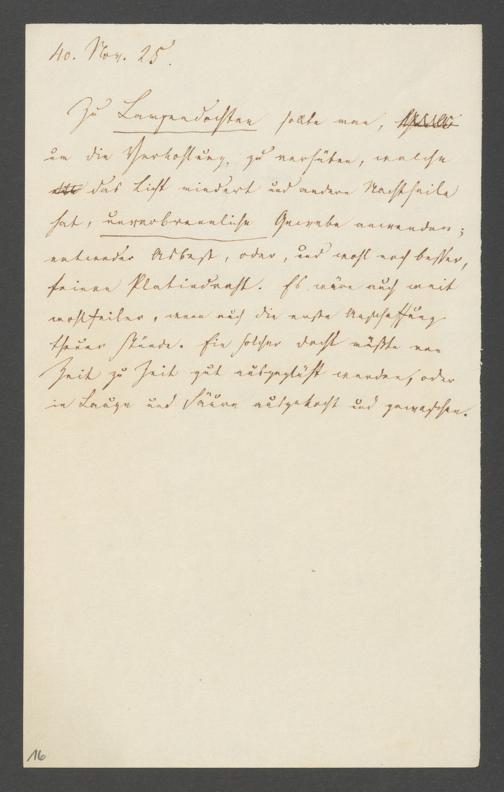 40. Nov. 25.
Zu Lampendochten sollte man,
um die Verkohlung, zu verhüten, welche
das Licht mindert und andere Nachtheile
hat, unverbrennliche Gewebe anwenden;
entweder Asbest, oder, und wohl noch besser,
feinen Platindraht. Es wäre auch weit
wohlfeiler, wenn auch die erste Anschaffung
theuer stünde. Ein solcher Docht müßte von
Zeit zu Zeit gut ausgeglüht werden, oder
in Lauge und Säure ausgekocht und gewaschen.
16